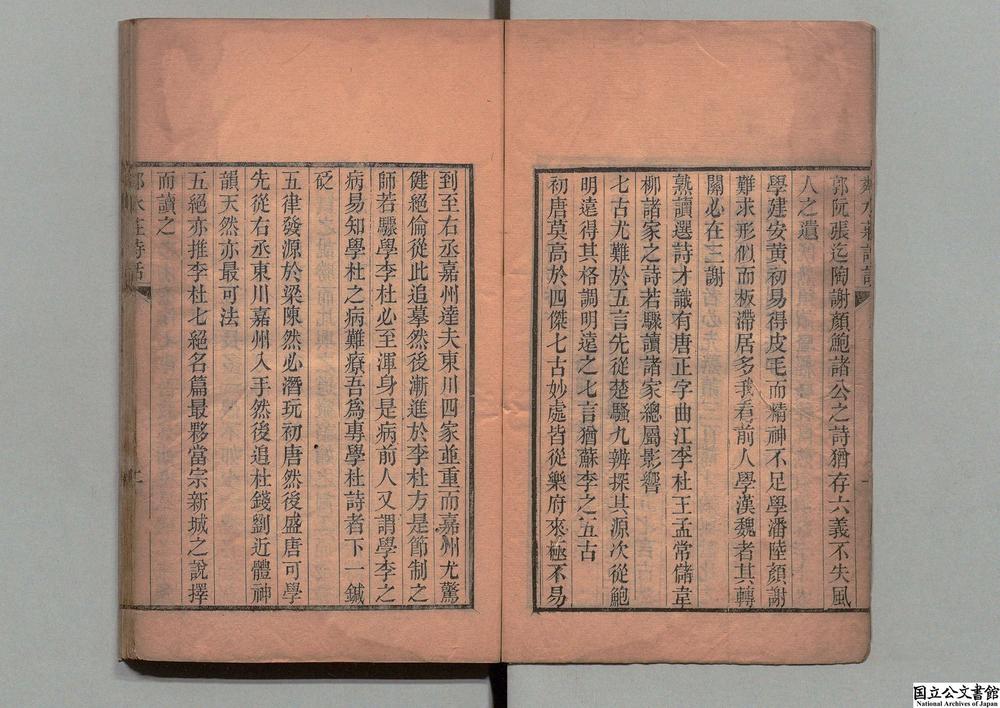 郭阮張迄陶謝顏鮑諸公之詩猶存六義不失風
人之遺
學建安黃初易得皮毛而精神不足學潘陸顏謝
難求形似而板滯居多我看前人學漢魏者其轉
關必在三謝
熟讀選詩才識有唐正字曲江李杜王孟常儲韋
柳諸家之詩若驟讀諸家總屬影響
七古尤難於五言先從楚騷九辨探其源次從鮑
明遠得其格調明遠之七言猶蘇李之五古
初唐莫高於四傑七古妙處皆從樂府來極不易
到至右丞嘉州達夫東川四家並重而嘉州尤驚
健絕倫從此追摹然後漸進於李杜方是節制之
師若驟學李杜必至渾身是病前人又謂學李之
病易知學杜之病難療吾為專學杜詩者下一鍼
砭
五律發源於梁陳然必潛玩初唐然後盛唐可學
先從右丞東川嘉州入手然後追杜錢劉近體神
韻天然亦最可法
五絕亦推李杜七絕名篇最夥當宗新城之說擇
而讀之
水莊詩話
二
国立公文書館
National Archives of Japan